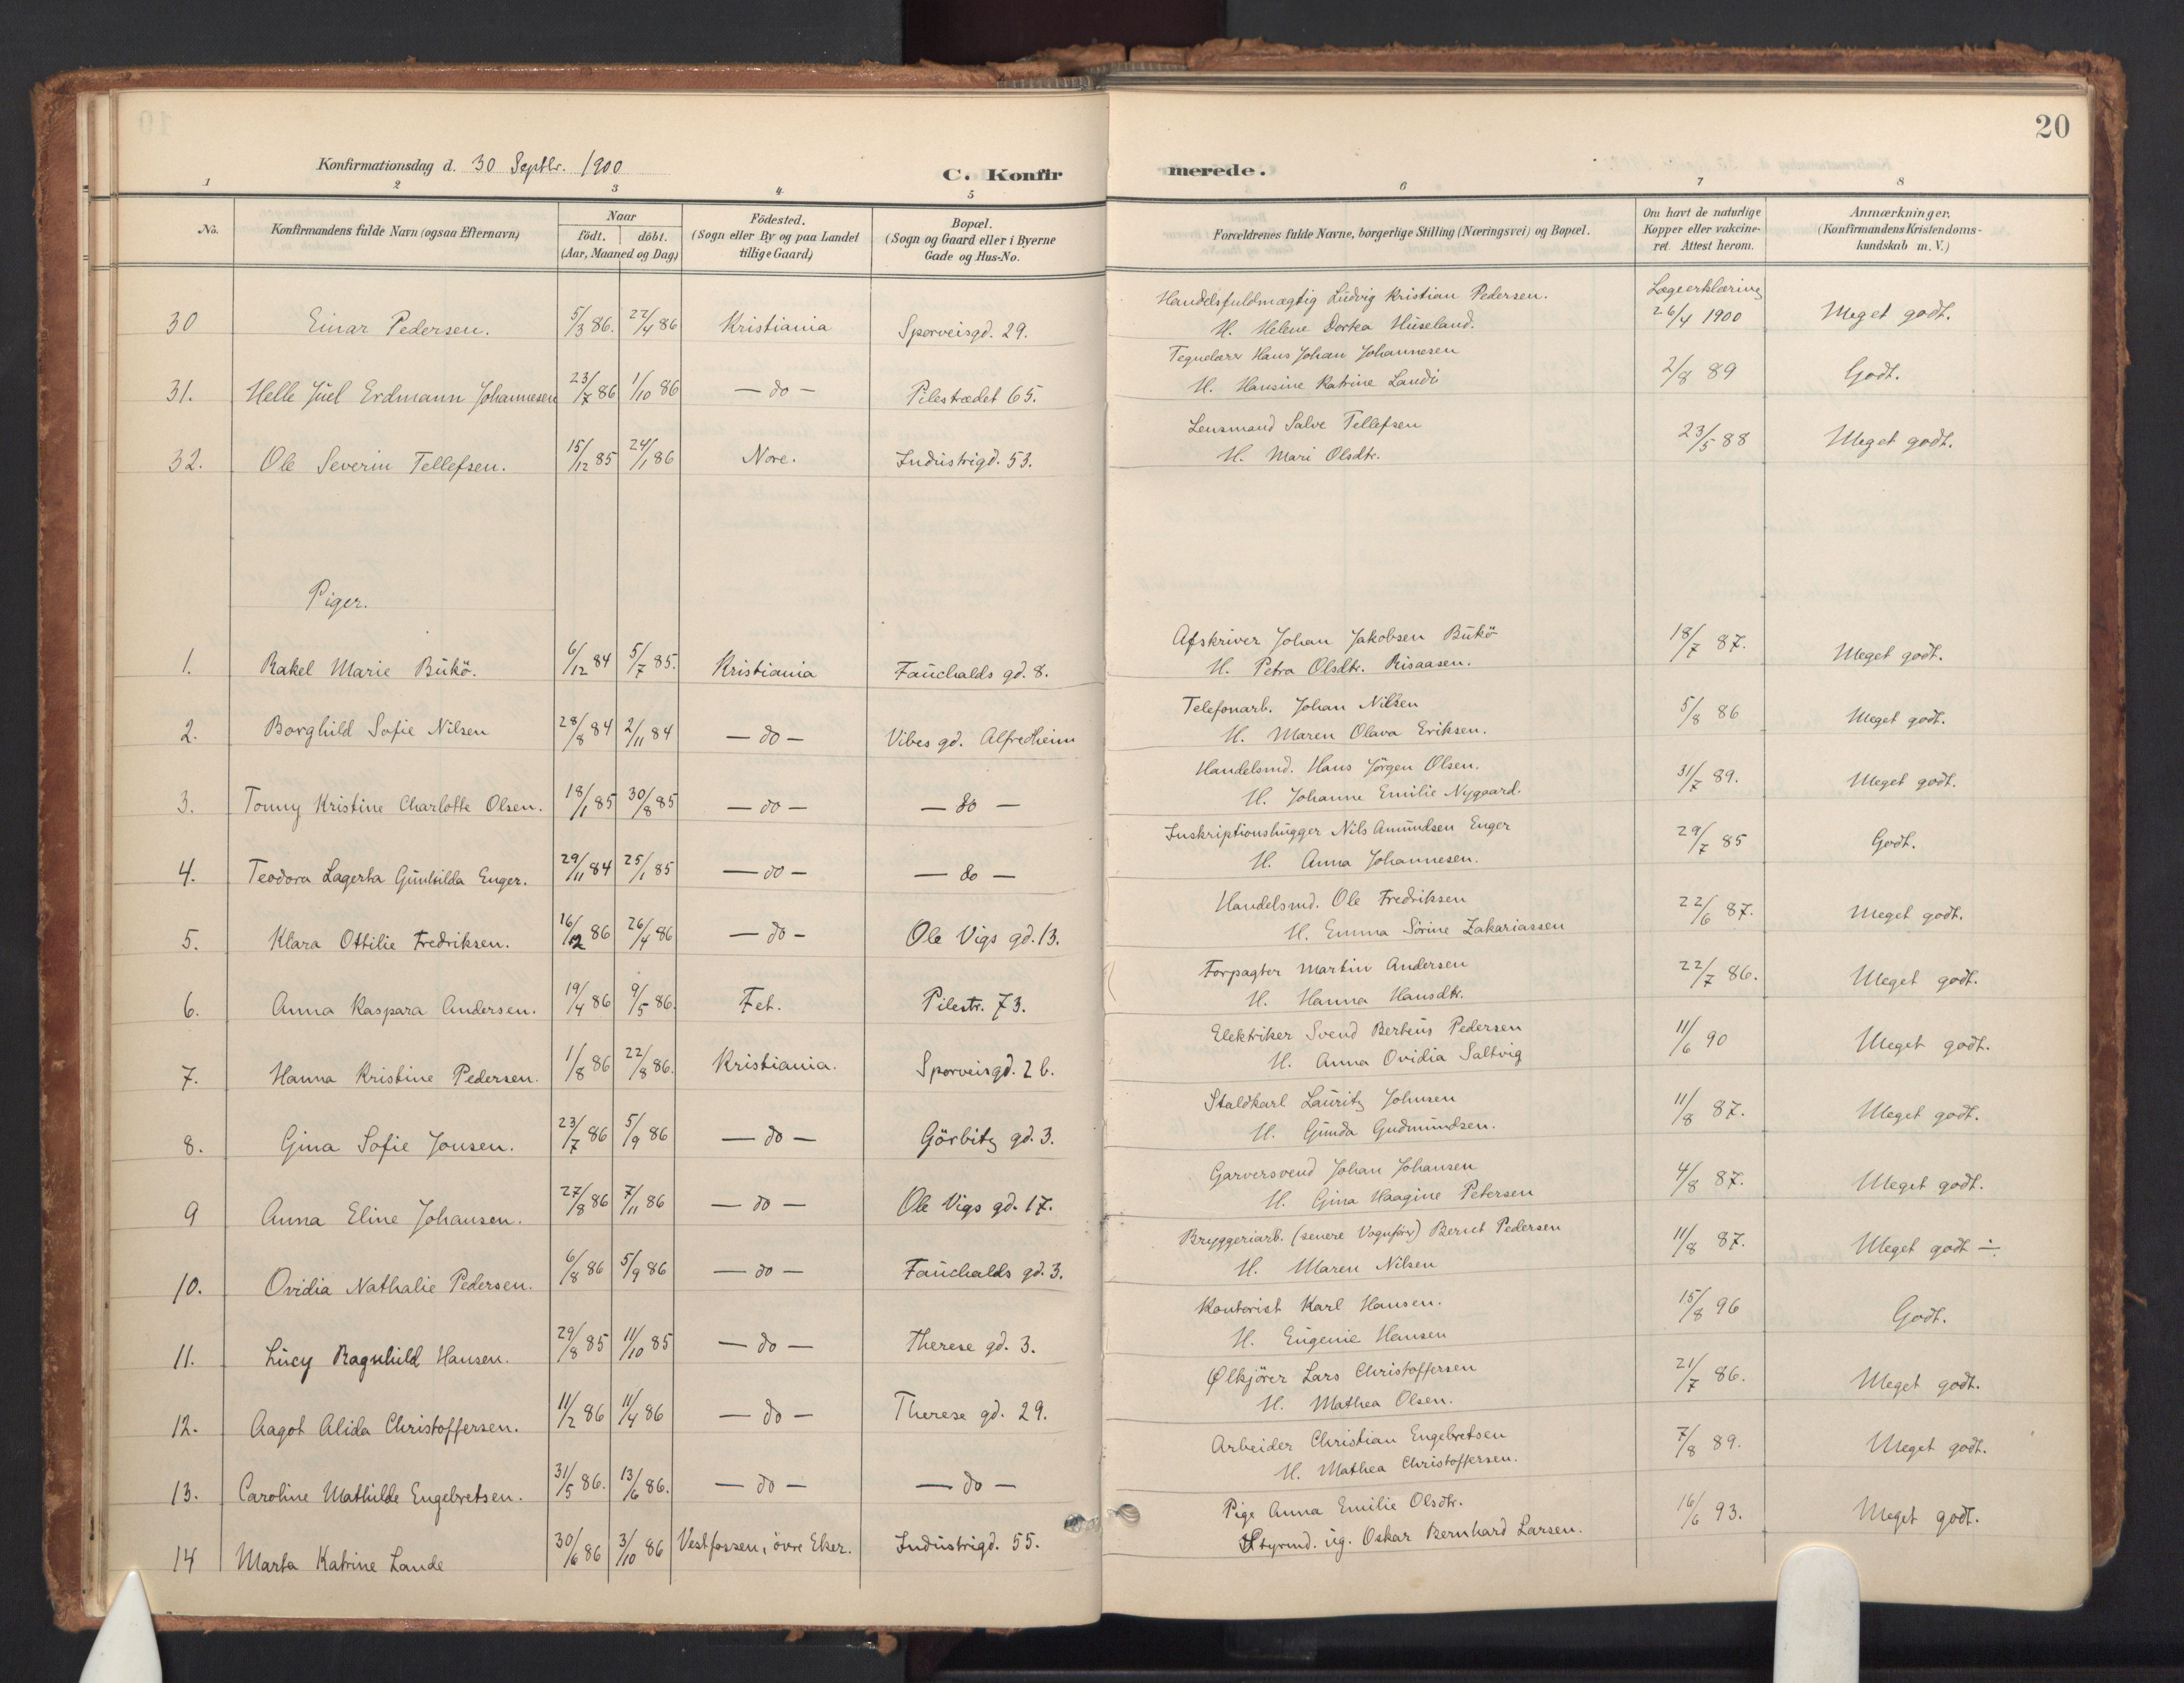 20
Konfirmationsdag d. 30 Septbr. 1900
C. Konfirmerede.
1 2 3 4 5 6 7 8
No. | Konfirmandens fulde Navn (ogsaa Efternavn) | Naar födt. döbt. (Aar, Maaned og Dag) | Födested. (Sogn eller By og paa Landet tillige Gaard) | Bopæl. (Sogn og Gaard eller i Byerne Gade og Hus-No. | Forældrenes fulde Navne, borgerlige Stilling (Næringsvei) og Bopæl. | Om havt de naturlige Kopper eller vakcineret. Attest herom. | Anmærkninger. (Konfirmandens Kristendomskundskab m. V.)
30 Einar Pedersen. 5/3 86. 22/4 86 Kristiania Sporveisgd. 29. Handelsfuldmægtig Ludvig Kristian Pedersen. Lægeerklæring
H. Helene Dortea Huseland. 26/4 1900 Meget godt.
31. Helle Juel Erdmann Johannesen 23/7 86 1/10 86 — do — Pilestrædet 65. Tegnelærer Hans Johan Johannesen 2/8 89 Godt.
H. Hansine Katrine Landi
32. Ole Severin Tellefsen. 15/12 85 24/1 86 Nore. Industrigd. 53. Lensmand Salve Tellefsen 23/5 88 Meget godt.
H. Mari Olsdtr.
Piger.
1. Rakel Marie Bukö. 6/12 84 5/7 85. Kristiania Fauchalds gd. 8. Afskriver Johan Jakobsen Bukö 18/7 87. Meget godt.
H. Petra Olsdtr. Risaasen.
2. Borghild Sofie Nilsen 28/8 84 2/11 84 — do — Vibes gd. Alfredheim Telefonarb. Johan Nilsen 5/8 86 Meget godt.
H. Maren Olava Eriksen.
3. Tonny Kristine Charlotte Olsen. 18/1 85 30/8 85 — do — — do — Handelsmd. Hans Jörgen Olsen. 31/7 89. Meget godt.
H. Johanne Emilie Nygaard.
4. Teodora Lagerta Gunhilda Enger. 29/11 84 25/1 85 — do — — do — Inskriptionshugger Nils Amundsen Enger 29/7 85 Godt.
H. Anna Johannesen.
5. Klara Ottilie Fredriksen. 16/12 86 26/4 86 — do — Ole Vigs gd. 13. Handelsmd. Ole Fredriksen 22/6 87. Meget godt.
H. Emma Sörine Zakariassen
6. Anna Kaspara Andersen. 19/4 86 9/5 86. Fet. Pilestr. 73. Forpagter Martin Andersen 22/7 86. Meget godt.
H. Hanna Hansdtr.
7. Hanna Kristine Pedersen. 1/8 86 22/8 86. Kristiania. Sporveisgd. 2 b. Elektriker Svend Berteus Pedersen 11/6 90 Meget godt.
H. Anna Ovidia Saltvig
8. Gina Sofie Jonsen. 23/7 86 5/9 86 — do — Görbitz gd. 3. Staldkarl Lauritz Johnsen 11/8 87. Meget godt.
H. Gunda Gudmundsen.
9 Anna Eline Johansen. 27/8 86 7/11 86 — do — Ole Vigs gd. 17. Garversvend Johan Johansen 4/8 87. Meget godt.
H. Gina Haagine Petersen
10. Ovidia Nathalie Pedersen. 6/8 86 5/9 86 — do — Fauchalds gd. 3. Bryggeriarb. (senere Vognfører) Bernt Pedersen 11/8 87. Meget godt ÷
H. Maren Nilsen
11. Lucy Ragnhild Hansen. 29/8 85 11/10 85 — do — Therese gd. 3. Kontorist Karl Hansen. 15/8 96 Godt.
H. Eugenie Hansen
12. Aagot Alida Christoffersen. 11/2 86 11/4 86 — do — Therese gd. 29. Ølkjörer Lars Christoffersen 21/7 86. Meget godt.
H. Mathea Olsen.
13. Caroline Mathilde Engebretsen. 31/5 86. 13/6 86. — do — — do — Arbeider Christian Engebretsen 7/8 89. Meget godt.
H. Mathea Christoffersen.
14 Marta Katrine Lande 30/6 86 3/10 86 Vestfossen, övre Eker. Industrigd. 55. Pige Anna Emilie Olsdtr. 16/6 93. Meget godt.
Styrmd. ug. Oskar Bernhard Larsen.